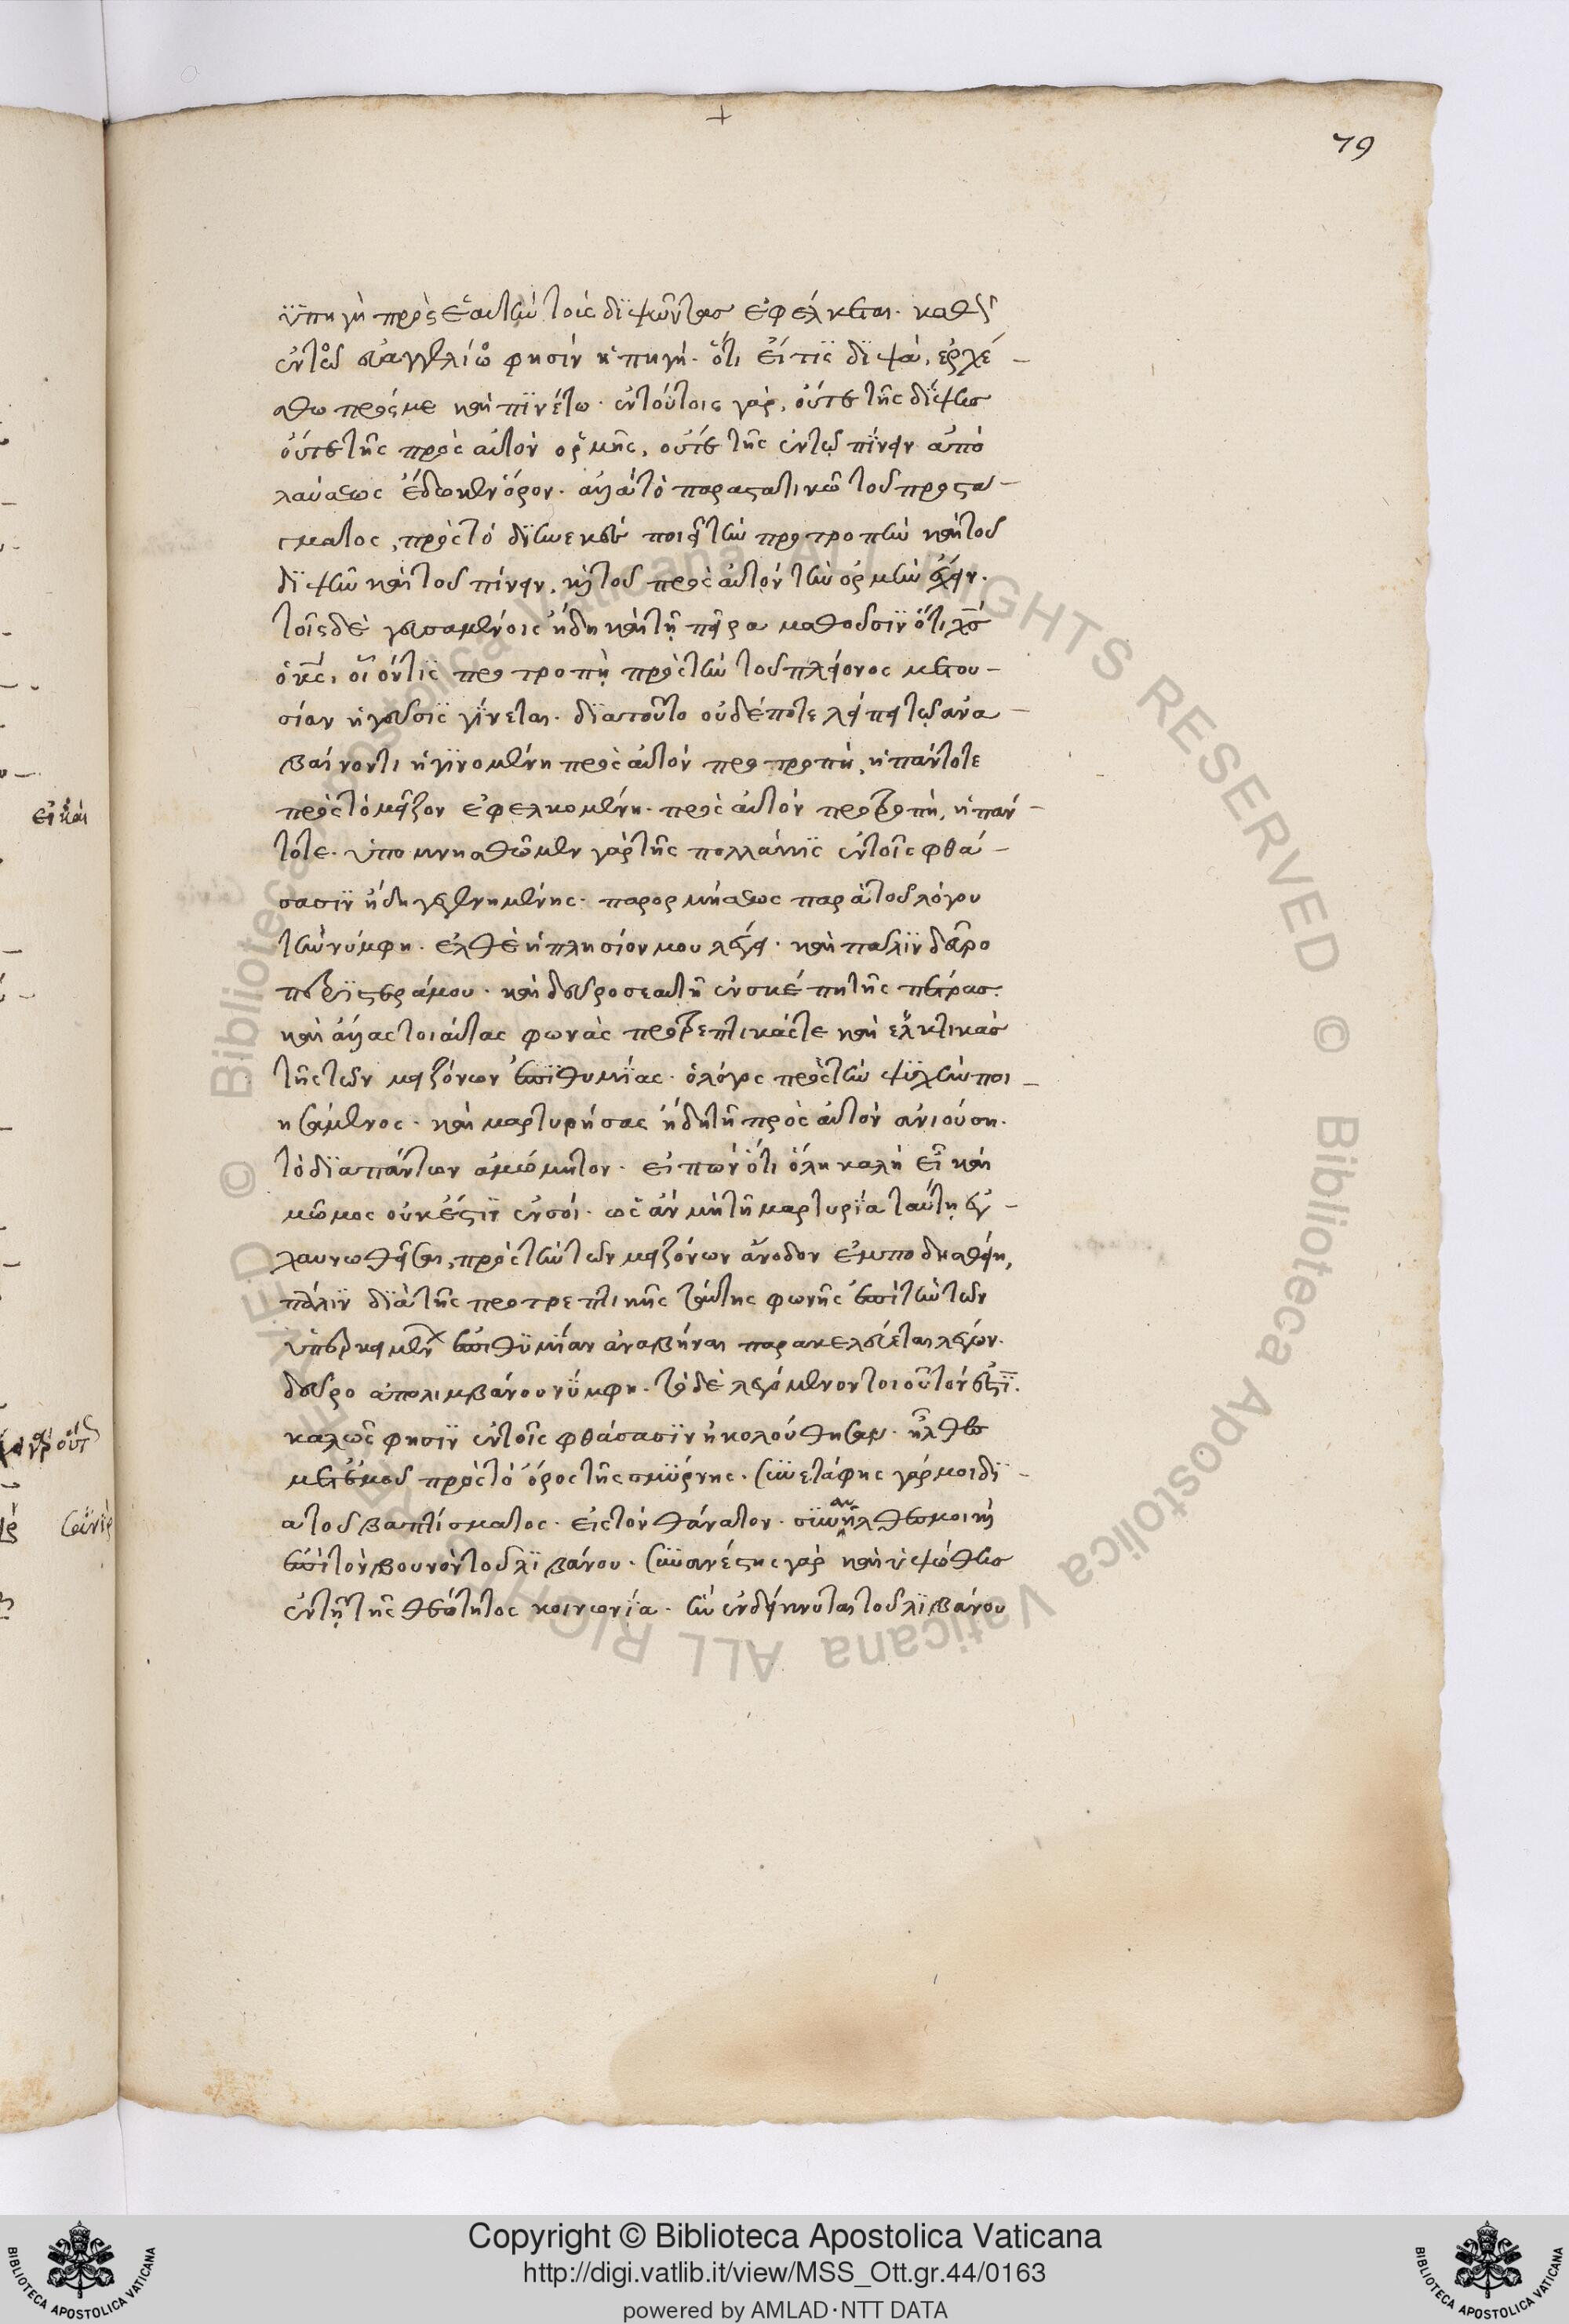 +
79
ϋπηγὴ πρὸς ἑαυτὴν τοὺς διψῶντας ἐφέλκεται. καθὼς
ἐν τῶ εὐαγγελίω φησὶν ἡ πηγή. ὅτι εἴ τις διψᾶ, ἐρχέ-
σθω πρός με καὶ πινέτω. ἐν τούτοις γὰρ, οὔτε τῆς δίψης
οὔτε τῆς πρὸς αὐτὸν ὁρμῆς, οὔτε τῆς ἐν τῶ πίνειν ἀπο
λαύσεως ἔδωκεν ὅρον. ἀλλὰ τὸ παρασατικῶ τοῦ προστα-
γματος, πρὸς τὸ διηνεκὲς ποιεῖ τὴν προτροπὴν καὶ τοῦ
διψῆν καὶ τοῦ πίνειν, καὶ τοῦ πρὸς αὐτὸν τὴν ὁρμὴν ἔχειν.
τοῖς δὲ γευσαμένοις ἤδη καὶ τῆ πείρα μαθοῦσιν ὅτι χς
ὁ κς, οἷόν τις προτροπὴ πρὸς τὴν τοῦ πλείονος μετου-
σίαν ἡ γεῦσις γίνεται. διὰ τοῦτο οὐδέποτε λείπει τῶ ἀνα-
βαίνοντι ἡ γινομένη πρὸς αὐτὸν προτροπὴ, ἡ πάντοτε
πρὸς τὸ μεῖζον ἐφελκομένη. πρὸς αὐτὸν προτροπὴ, ἡ πάν-
τοτε. ὑπομνησθῶμεν γὰρ τῆς πολλάκις ἐν τοῖς φθά-
σασιν ἤδη γεγενημένης. παρορμήσεως παρὰ τοῦ λόγου
τὴν νύμφη. ἐλθὲ ἡ πλησίον μου λέγει. καὶ πάλιν δεῦρο
περιστερά μου. καὶ δεῦρο σεαυτῆ ἐν σκέπη τῆς πέτρας.
καὶ ἄλλας τοιαύτας φωνὰς προτρεπτικάς τε καὶ ἑλκτικὰς
τῆς τῶν μειζόνων ἐπιθυμίας. ὁ λόγος πρὸς τὴν ψυχὴν ποι-
ησάμενος. καὶ μαρτυρήσας ἤδη τῆ πρὸς αὐτὸν ἀνιούση.
τὸ διαπάντων ἀμώμητον. εἰπὼν ὅτι ὅλη καλὴ εἶ καὶ
μῶμος οὐκ ἔστιν ἐν σοί. ὡς ἂν μὴ τῆ μαρτυρία ταύτη ἐγ-
χαυνωθεῖσα, πρὸς τὴν τῶν μειζόνων ἄνοδον ἐμποδισθείη,
πάλιν διὰ τῆς προτρεπτικῆς ταύτης φωνῆς ἐπὶ τὴν τῶν
ὑπερκειμένων ἐπιθυμίαν ἀναβῆναι παρακελεύεται λέγων.
δεῦρο ἀπο λιμβάνου νύμφη. τὸ δὲ λεγόμενον τοιοῦτόν ἐστϊ.
καλῶς φησιν ἐν τοῖς φθάσασιν ἠκολούθησας. ἦλθες
μετ' ἐμοῦ πρὸς τὸ ὄρος τῆς σμύρνης. συνετάφης γάρ μοι δι-
ὰ τοῦ βαπτίσματος. εἰς τὸν θάνατον. συνανῆλθες μοι καὶ
ἐπὶ τὸν βουνὸν τοῦ λιβάνου. συνανέστης γὰρ καὶ ὑψώθης
ἐν τῆ τῆς θεότητος κοινωνία. ἣν ἐνδείκνυται τοῦ λιβάνου
Copyright © Biblioteca Apostolica Vaticana
http://digi.vatlib.it/view/MSS_Ott.gr.44/0163
powered by AMLAD·NTT DATA